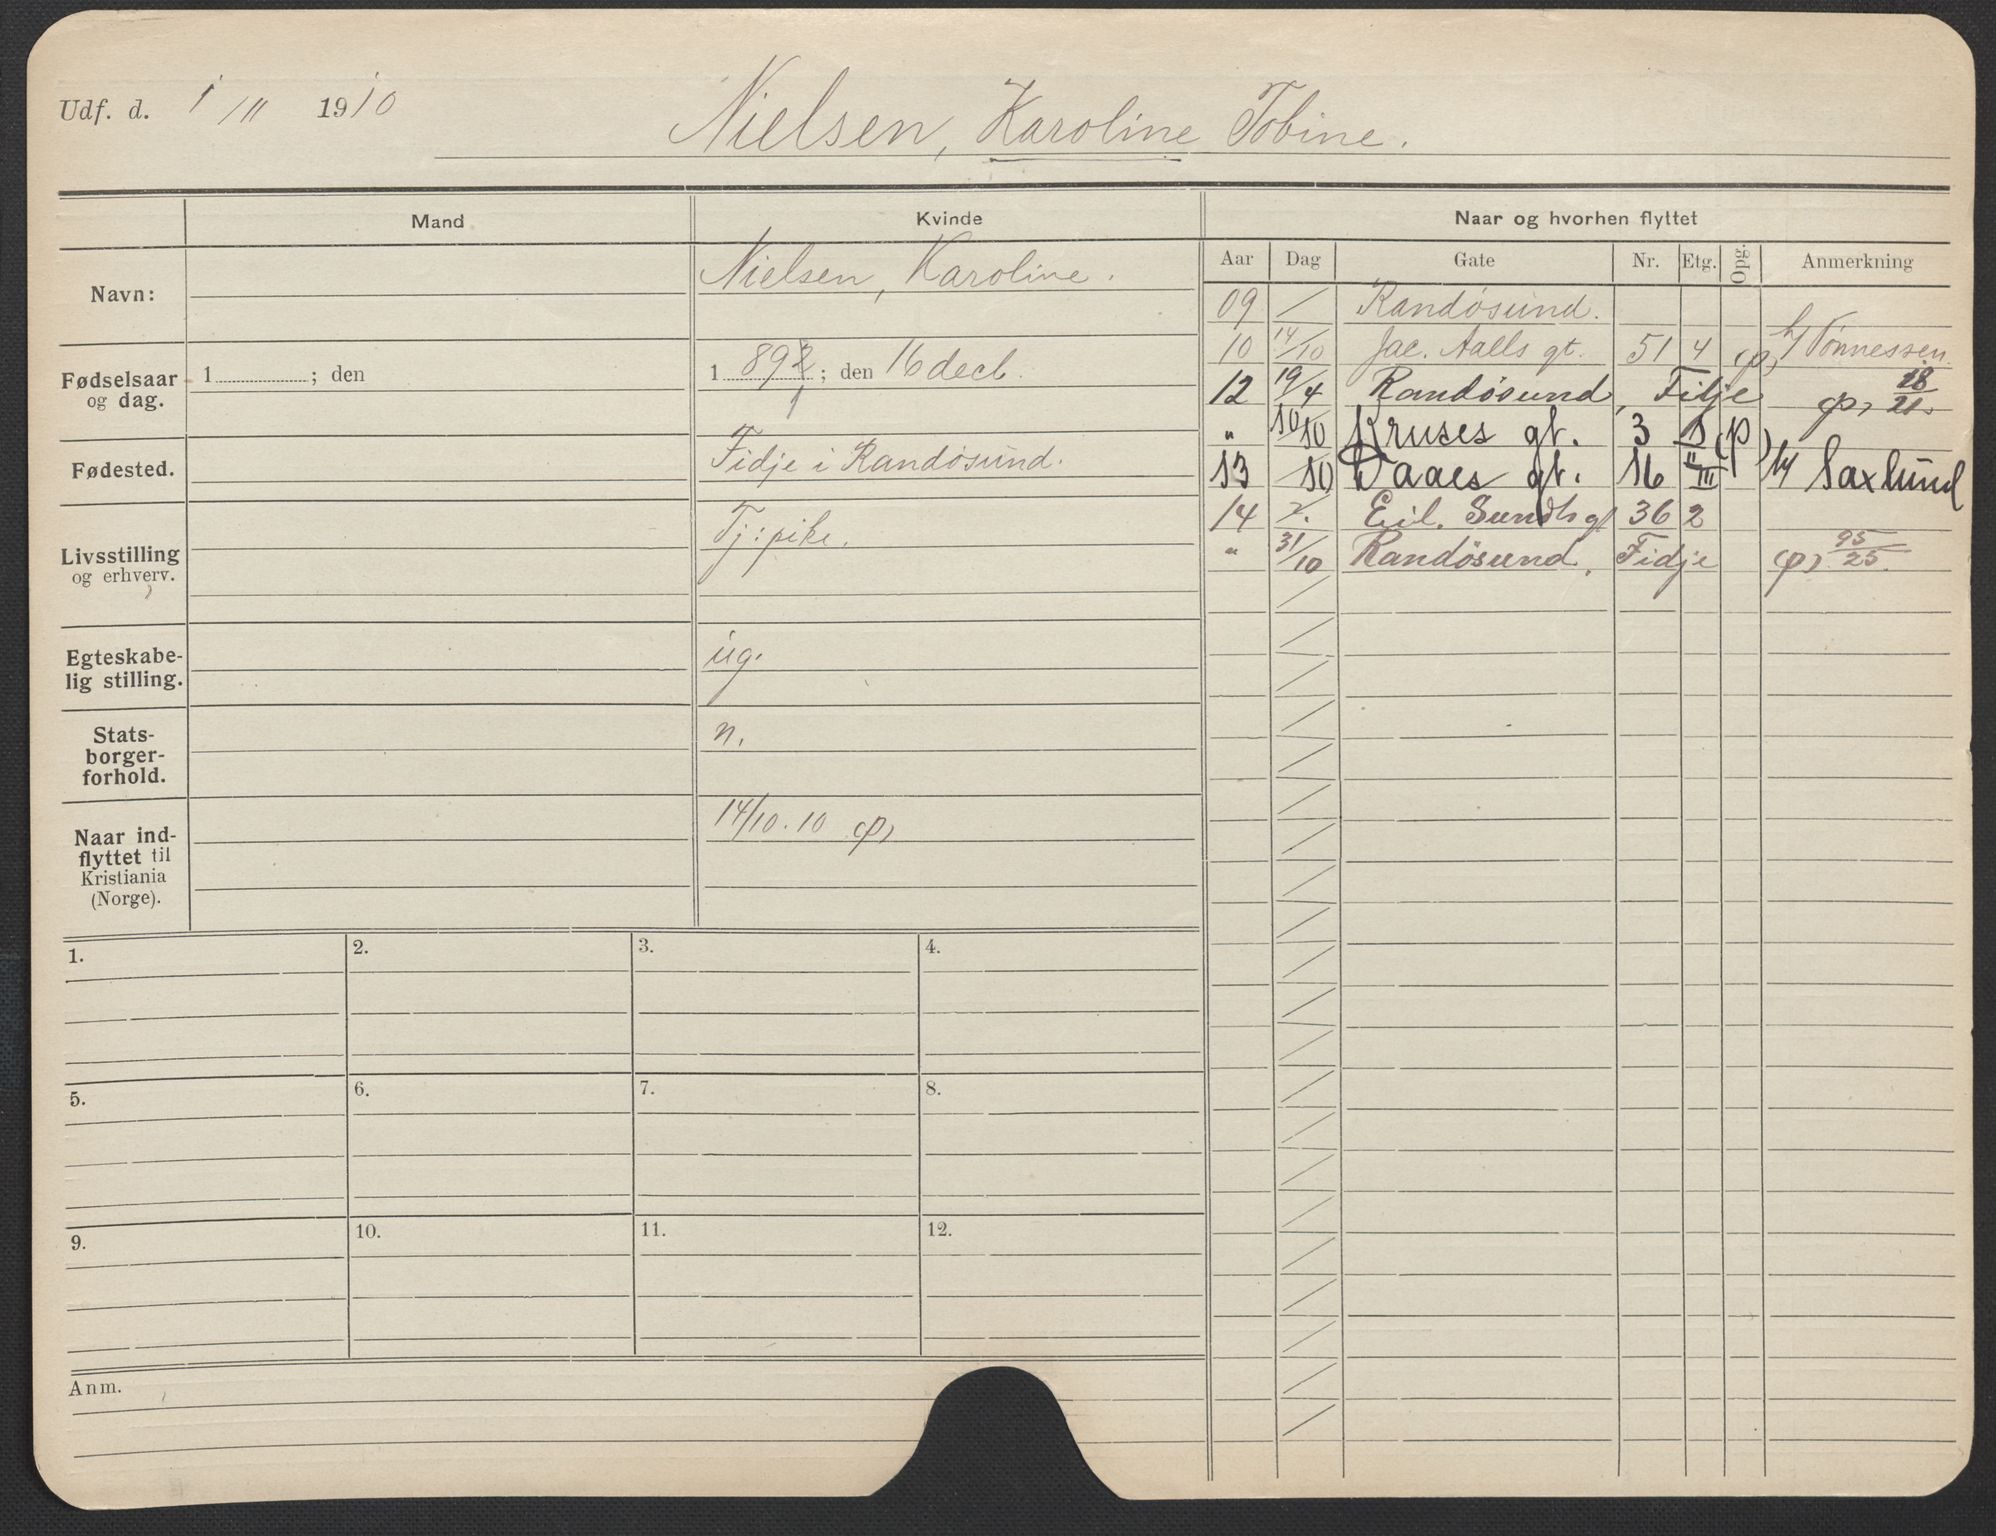 Udf. d. 1/11 1910
Nielsen, Karoline Tobine.
Mand Kvinde Naar og hvorhen flyttet
Aar Dag Gate Nr. Etg. Opg. Anmerkning
Navn: Nielsen, Karoline.
Fødselsaar og dag. 1 ; den 1 892 ; den 16 decb.
1
Fødested. Fidje i Randøsund.
Livsstilling og erhverv. Tj: pike.
Egteskabe-
lig stilling. ug.
Stats-
borger-
forhold. n.
Naar ind-
flyttet til
Kristiania
(Norge). 14/10. 10 (p)
09 / Randøsund.
10 14/10 Jac. Aalls gt. 51 4 (p) h/ Tønnessen
12 19/4 Randøsund, Filje (p) 18/21.
" 10/10 Kruses gt. 3 (p)
13 /10 Daaes gt. 16 III h/ Saxlund
14 Eil. Sundts gt 36 2
" 31/10 Randøsund, Fidje (p) 95/25.
1. 2. 3. 4.
5. 6. 7. 8.
9. 10. 11. 12.
Anm.